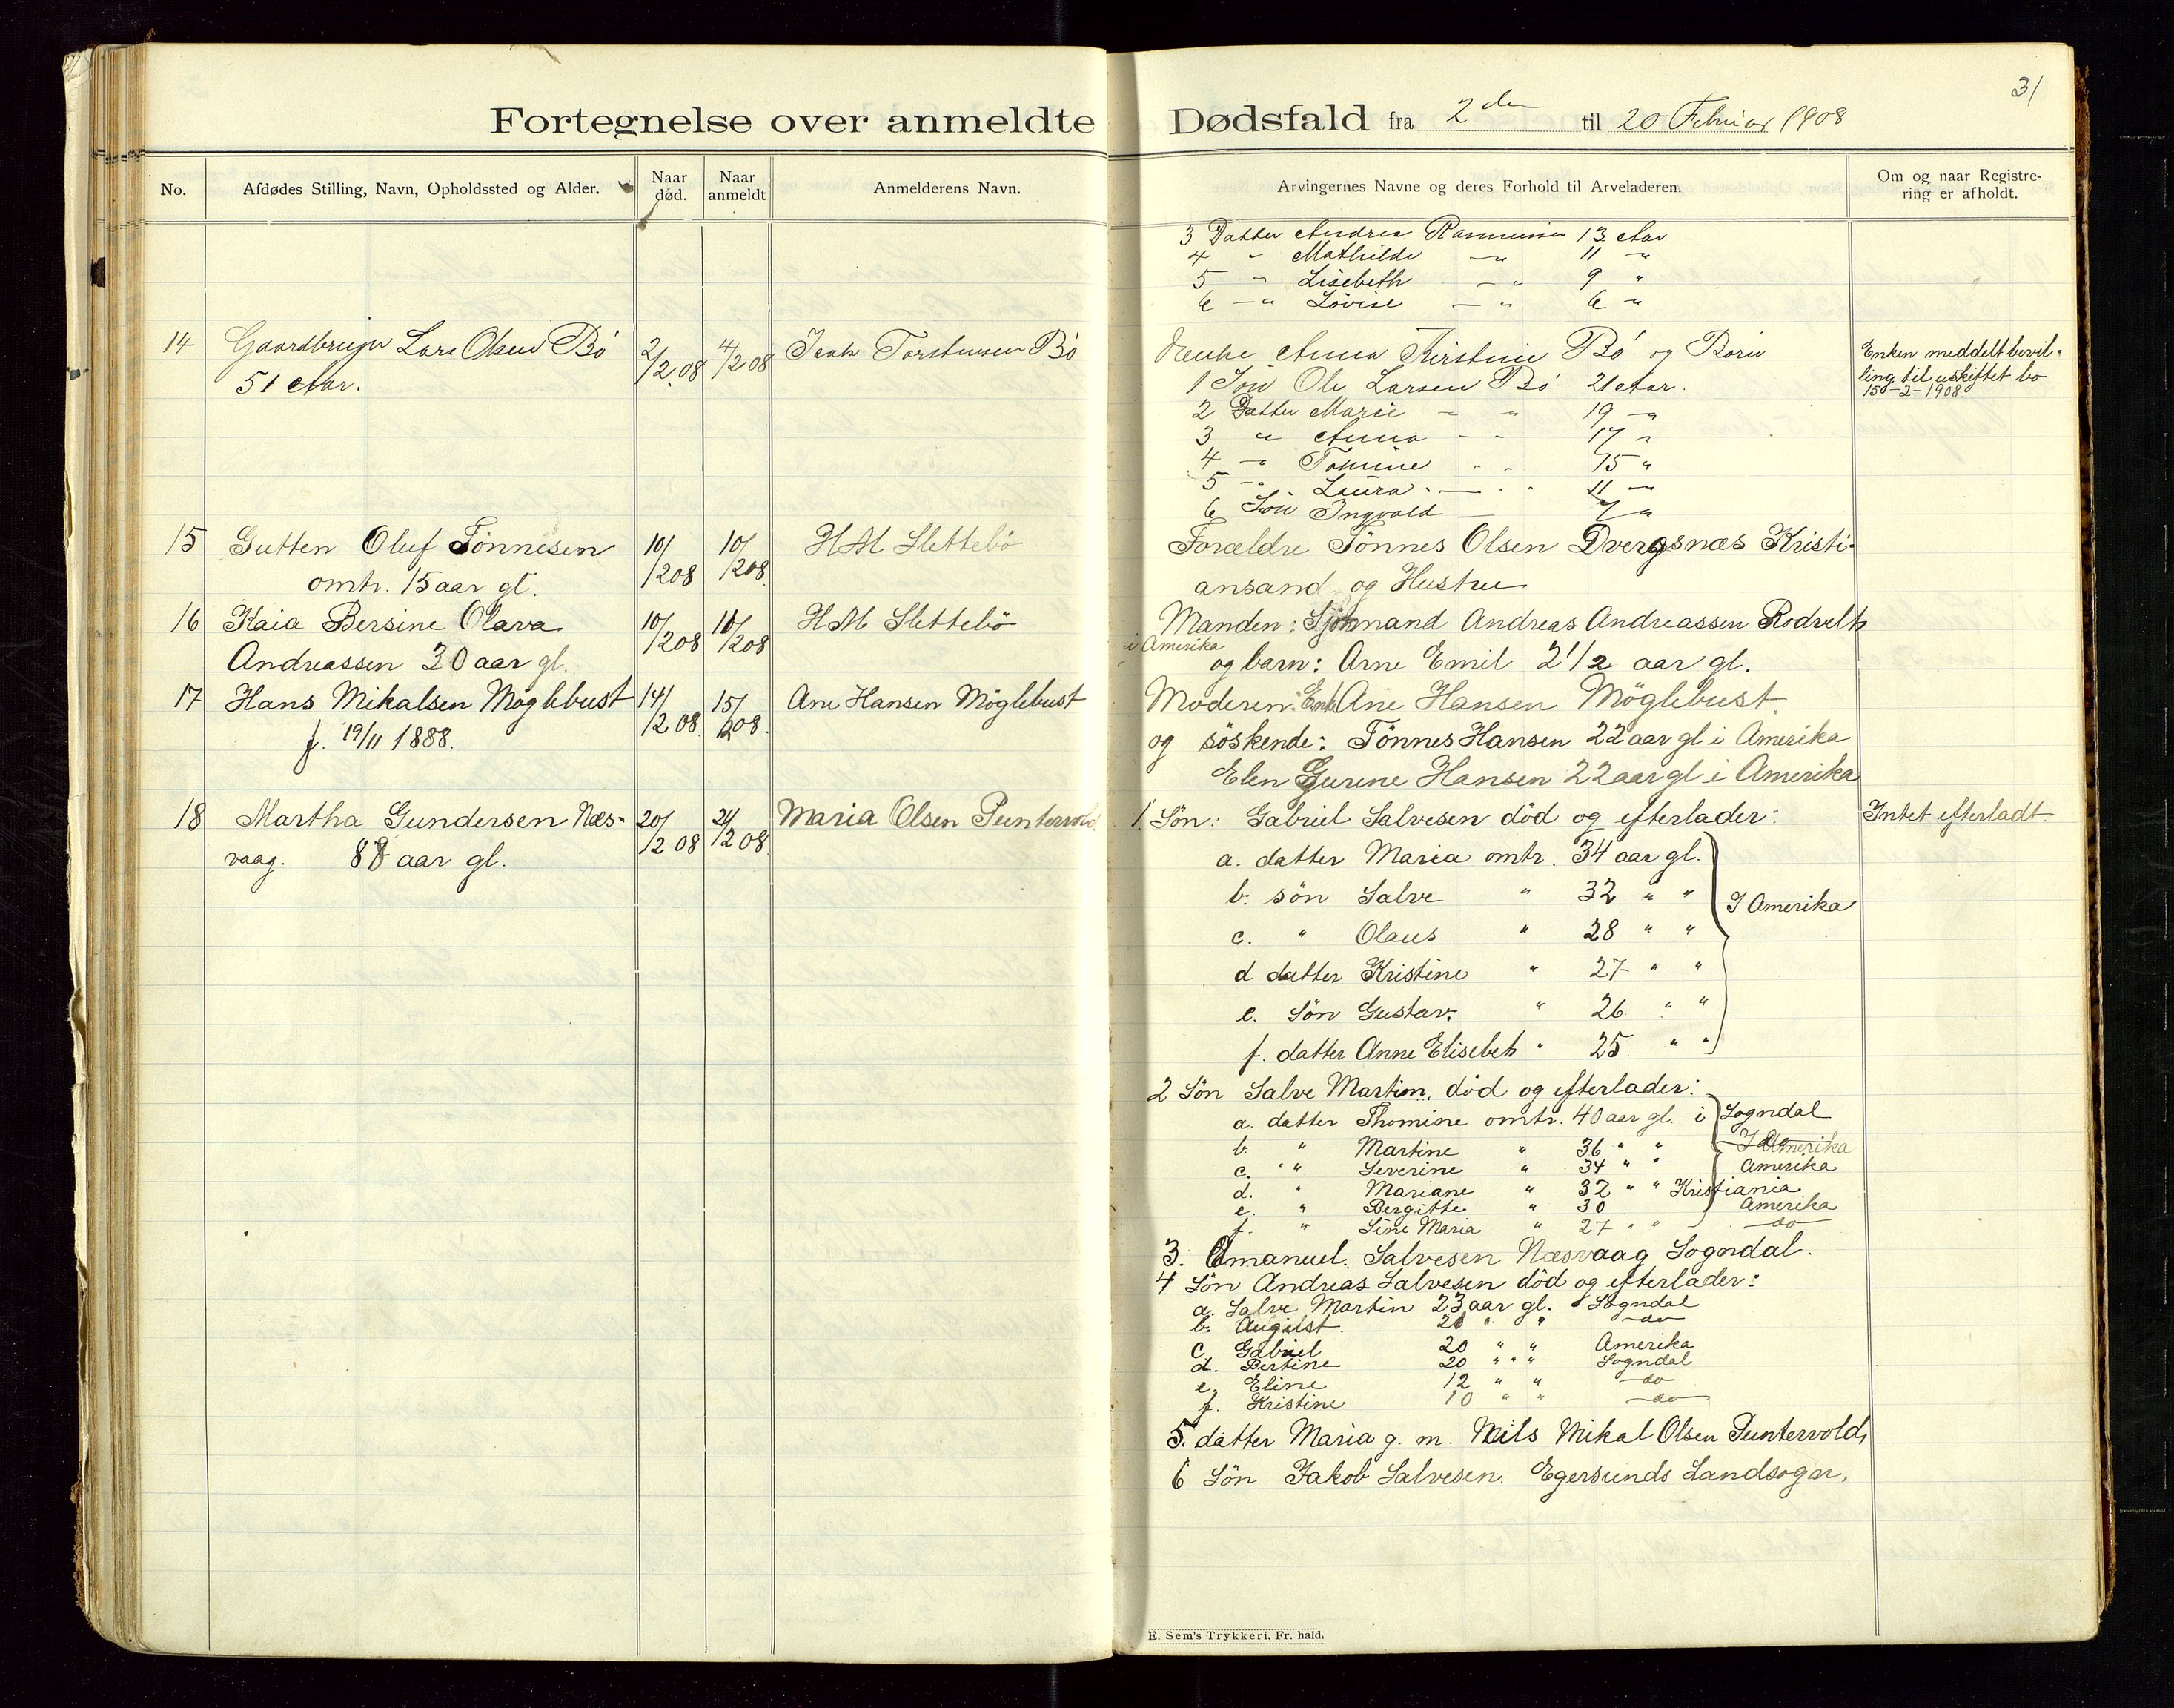 31
Fortegnelse over anmeldte Dødsfald fra 2den til 20 Februar 1908
No. Afdødes Stilling, Navn, Opholdssted og Alder. Naar død. Naar anmeldt Anmelderens Navn. Arvingernes Navne og deres Forhold til Arveladeren. Om og naar Registrering er afholdt.
3 Datter Andrea Rasmussen 13 Aar
4 " Mathilde — " 11 — "
5 " Lisebeth — " 9 "
6 — " Lovise — " 6 — "
14 Gaardbruger Lars Olsen Bö 2/2 08 4/2 08 Torstensen Bö
51 Aar.
Enke Anna Kirstine Bö og Börn
1 Sön Ole Larsen Bö 21 Aar.
2 Datter Marie — " 19 — "
3 " Anna - - 17 "
4 — " Tomine - - 15 "
5 — " Laura - — - " 11 — "
6 Sön Ingvald — 7 — "
Enken meddelt bevil-
ling til uskiftet bo
15-2-1908.
15 Gutten Oluf Tönnesen 10/2 08 10/2 08 H M Slettebö
omtr. 15 aar gl.
Forældre Tönnes Olsen Dvergsnæs Kristi-
ansand og Hustru
16 Kaia Bersine Olava 10/2 08 10/2 08 H M Slettebö
Andreassen 30 aar gl.
Manden: Sjömand Andreas Andreassen Rodvelt
i Amerika
og barn: Arne Emil 2 1/2 aar gl.
17 Hans Mikalsen Möglebust 14/2 08. 15/2 08. Ane Hansen Möglebust
f. 19/11 1888.
Moderen: Enke Ane Hansen Möglebust.
og söskende: Tönnes Hansen 22 aar gl i Amerika
Elen Gurine Hansen 22 aar gl i Amerika
18 Martha Gundersen Næs- 20/2 08 21/2 08 Maria Olsen Puntervold
vaag. 88 aar gl.
1. Sön: Gabriel Salvesen död og efterlader: Intet efterladt.
a. datter Maria omtr. 34 aar gl.
b. sön Salve " 32 " " I Amerika
c. " Olaus " 28 " "
d datter Kristine " 27 " "
e. Sön Gustav. " 26 " "
f. datter Anne Elisebeth " 25 " "
2 Sön Salve Martin. död og efterlader:
a. datter Thomine omtr. 40 aar gl. i Sogndal
b. " Martine " 36 " " I Amerika
c. " Severine " 34 " " Amerika
d. " Mariane " 32 " " Kristiania
e. " Bergitte " 30 Amerika
f. " Sine Maria " 27 " " do
3. Emanuel. Salvesen Næsvaag Sogndal.
4 Sön Andreas Salvesen död og efterlader:
a. Salve Martin 23 aar gl. Sogndal
b. August. 20 " " do
c Gabriel 20 " " Amerika
d. Bertine 20 " " " Sogndal
e. Eline 12 " " do
f. Kristine 10 " " do
5. datter Maria g. m. Nils Mikal Olsen Puntervold,
6 Sön Jakob Salvesen. Egersunds Landsogn.
E. Sem's Trykkeri, Fr. hald.